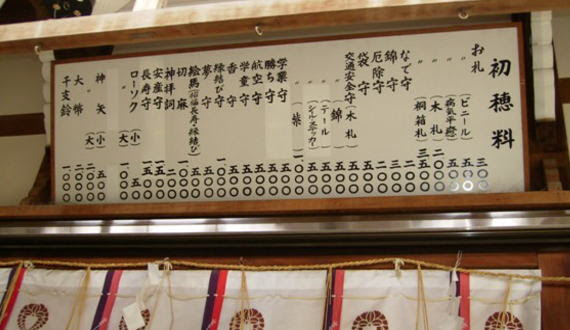 初穂料
お札 (ビニール) 三〇〇
〃 (病気平癒) 五〇〇
〃 (木札) 五〇〇
〃 桐箱札
なで守
錦守 三〇〇
厄除守 二〇〇
袋守 五〇〇
交通安全守(木札) 五〇〇
〃 錦 五〇〇
〃 (テール) 五〇〇
〃 (シール・ステッカー) 五〇〇
〃 柴 一〇〇〇
学業守 五〇〇
勝ち守 五〇〇
航空守 五〇〇
学童守 五〇〇
香守 五〇〇
縁結び守 一〇〇〇
夢守 五〇〇
絵馬(福寿・縁結び) 五〇〇
切麻 五〇〇
神拝詞 二〇〇
安産守 一五〇〇
長寿守 一五〇〇
ローソク (小) 五〇
〃 (大) 一〇〇
神矢 (小) 五〇〇
〃 (大)
大幣
干支鈴 一〇〇〇